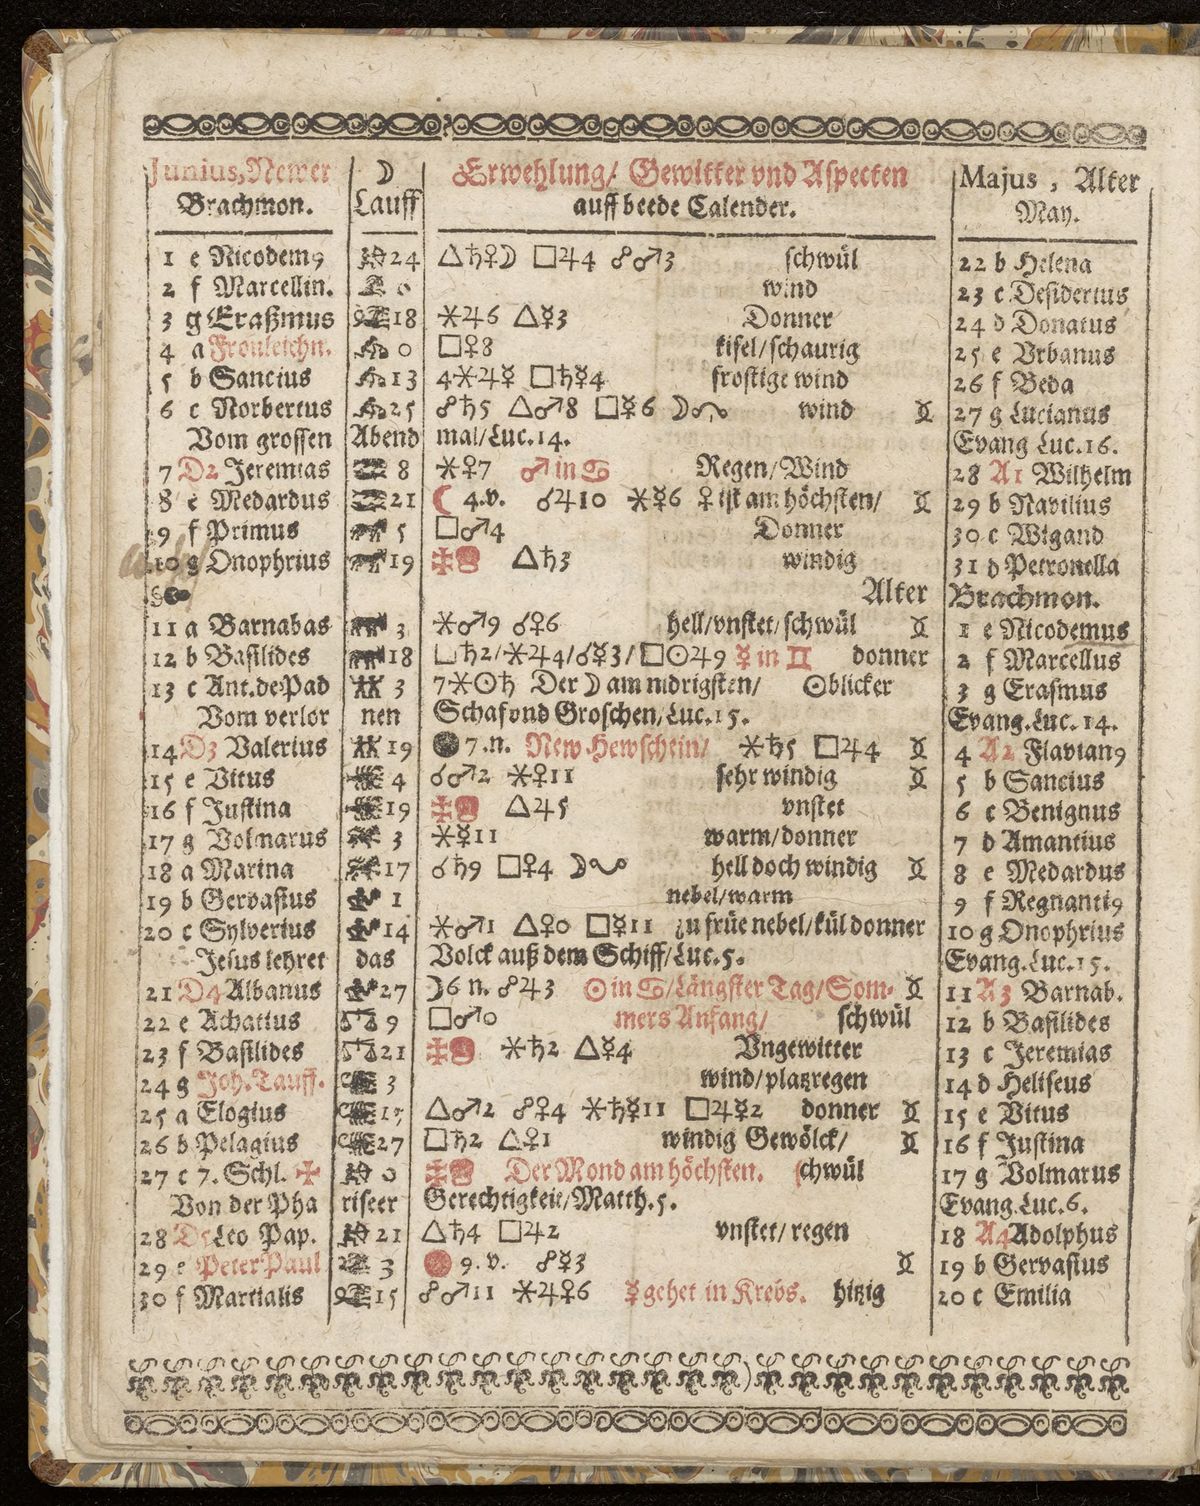 Junius, Newer ☽ Erwehlung/ Gewitter vnd Aspecten Majus, Alter
Brachmon. Lauff auff beede Calender. May.
1 e Nicodem9 24 △♄♀☽ □♃4 ☍♂3 schwül 22 b Helena
2 f Marcellin. wind 23 c Desiderius
3 g Eraßmus 18 ⚹♃6 △☿3 Donner 24 d Donatus
4 a Fronleichn. 0 □♀8 kisel/schaurig 25 e Vrbanus
5 b Sancius 13 4⚹♃☿ □♄☿4 frostige wind 26 f Beda
6 c Norbertus 25 ☍♄5 △♂8 □☿6 ☽ wind 27 g Lucianus
Vom grossen Abend mal/Luc.14. Evang Luc.16.
7 D2 Jeremias 8 ⚹♀7 ♂ in ♋ Regen/Wind 28 A1 Wilhelm
8 e Medardus 21 ☾ 4.v. ☌♃10 ⚹☿6 ♀ ist am höchsten/ 29 b Navilius
9 f Primus 5 □♂4 Donner 30 c Wigand
10 g Onophrius 19 ✠ △♄3 windig 31 d Petronella
Alter Brachmon.
11 a Barnabas 3 ⚹♂9 ☌♀6 hell/vnstet/schwül 1 e Nicodemus
12 b Basilides 18 □♄2/⚹♃4/☌☿3/□☉♃9 ☿ in ♊ donner 2 f Marcellus
13 c Ant.de Pad 3 7⚹☉♄ Der ☽ am nidrigsten/ ☉blicker 3 g Erasmus
Vom verlor nen Schaf vnd Groschen/Luc.15. Evang.Luc.14.
14 D3 Valerius 19 ● 7.n. New Hewschein/ ⚹♄5 □♃4 4 A2 Flavian9
15 e Vitus 4 ☌♂2 ⚹♀11 sehr windig 5 b Sancius
16 f Justina 19 ✠ △♃5 vnstet 6 c Benignus
17 g Volmarus 3 ⚹☿11 warm/donner 7 d Amantius
18 a Marina 17 ☌♄9 □♀4 ☽ hell doch windig 8 e Medardus
19 b Gervasius 1 nebel/warm 9 f Regnanti9
20 c Sylverius 14 ⚹♂1 △♀0 □☿11 zu früe nebel/kül donner 10 g Onophrius
Jesus lehret das Volck auß dem Schiff/Luc.5. Evang.Luc.15.
21 D4 Albanus 27 ☽6 n. ☍♃3 ☉ in ♋/Längster Tag/Som- 11 A3 Barnab.
22 e Achatius 9 □♂0 mers Anfang/ schwül 12 b Basilides
23 f Basilides 21 ✠ ⚹♄2 △☿4 Vngewitter 13 c Jeremias
24 g Joh.Tauff. 3 wind/platzregen 14 d Heliseus
25 a Elogius △♂2 ☍♀4 ⚹♄☿11 □♃☿2 donner 15 e Vitus
26 b Pelagius 27 □♄2 △♀1 windig Gewölck/ 16 f Justina
27 c 7. Schl. ✠ 0 ✠ Der Mond am höchsten. schwül 17 g Volmarus
Von der Pha riseer Gerechtigkeit/Matth.5. Evang.Luc.6.
28 D5 Leo Pap. 21 △♄4 □♃2 vnstet/regen 18 A4 Adolphus
29 e Peter Paul 3 9.v. ☍☿3 19 b Gervasius
30 f Martialis 15 ☍♂11 ⚹♃♀6 ☿ gehet in Krebs. hitzig 20 c Emilia